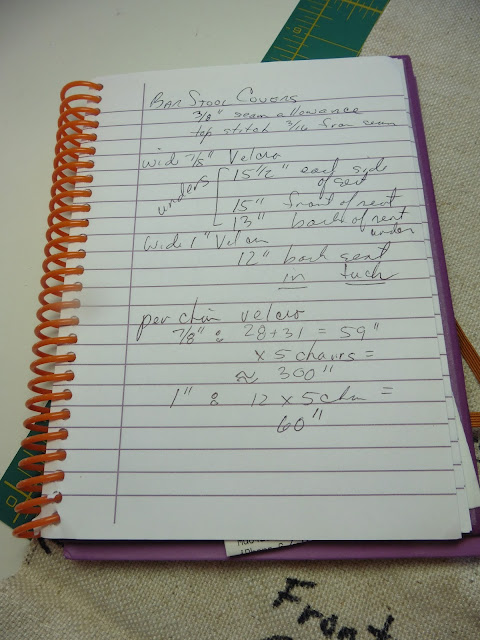 Bar Stool Covers
3/8" seam allowance
top stitch 3/16 from seam
wide 7/8" Velcro
unders
15 1/2" each side
of seat
15" front of seat
13" back of seat
under
Wide 1" Velcro
12" back seat
in tuck
per chair velcro
7/8" : 28+31 = 59"
x 5 chairs =
≈ 300"
1" : 12 x 5 chr =
60"
Front